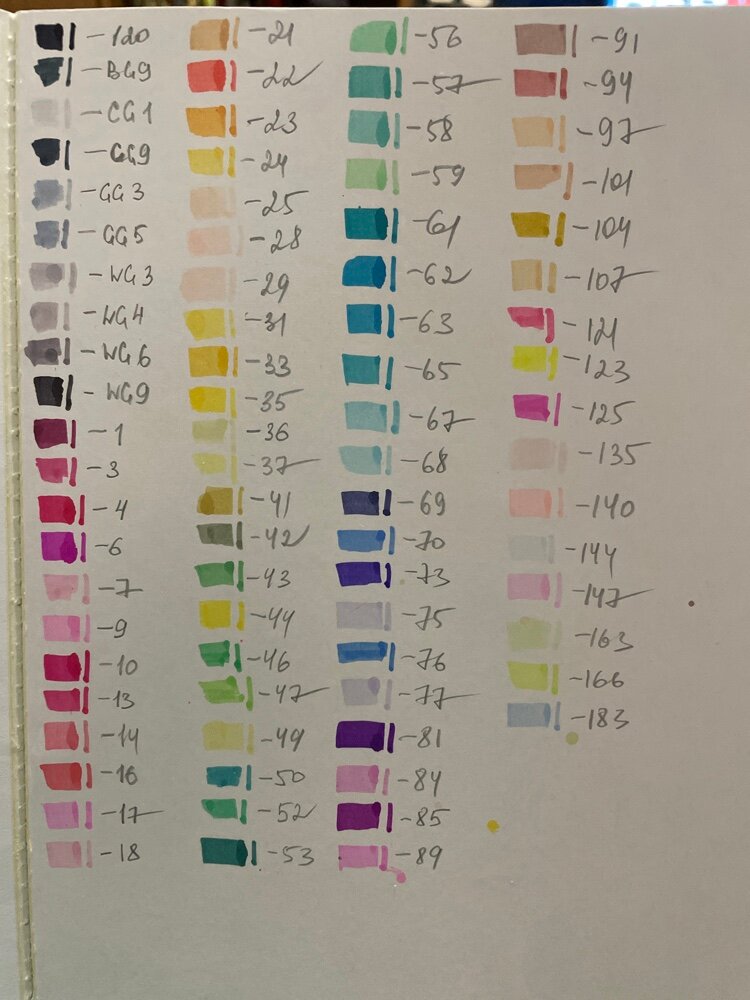 -120
-BG9
-CG1
-GG9
-GG3
-GG5
-WG3
-WG4
-WG6
-WG9
-1
-3
-4
-6
-7
-9
-10
-13
-14
-16
-17
-18
-21
-22
-23
-24
-25
-28
-29
-31
-33
-35
-36
-37
-41
-42
-43
-44
-46
-47
-49
-50
-52
-53
-56
-57
-58
-59
-61
-62
-63
-65
-67
-68
-69
-70
-73
-75
-76
-77
-81
-84
-85
-89
-91
-94
-97
-101
-104
-107
-121
-123
-125
-135
-140
-144
-147
-163
-166
-183